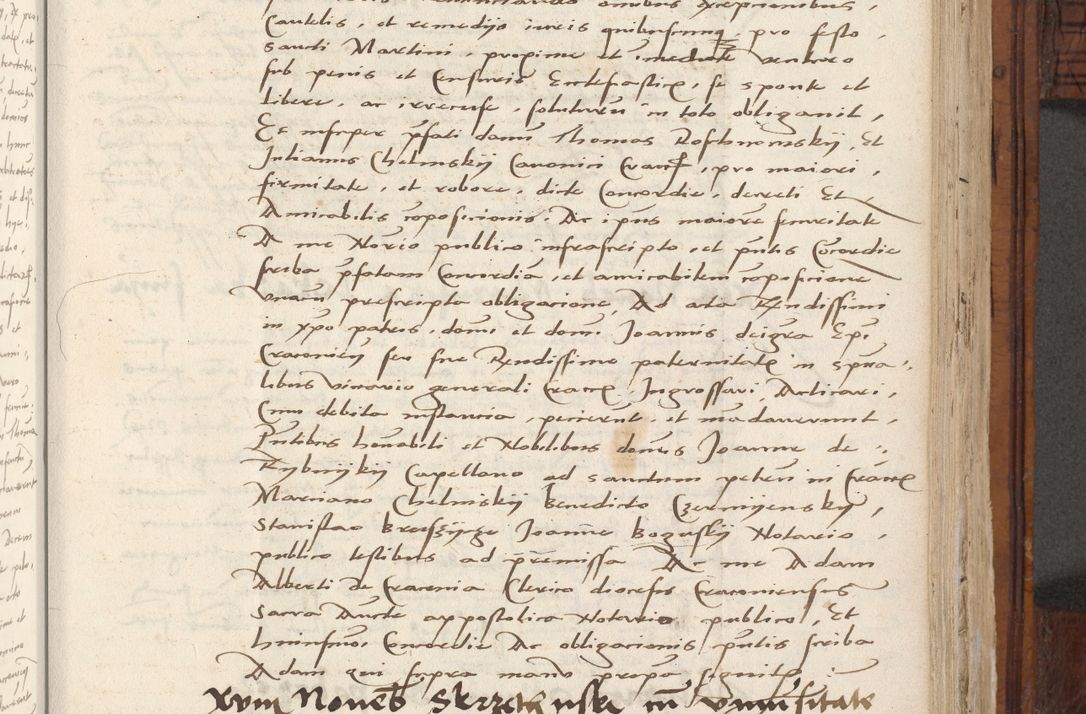 Cautelis, et remedijs iuris quibuscunq pro festo,
Sancti Martini, proxime et inmediate venturo
sub penis et Censuris Ecclesiasticis, se sponte et
libere, ac irrecuse, soluturum in toto obligavit,
Et insuper pfati domi Thomas Et
Julianus Chelmskij Canonici Cracoc, pro maiori,
firmitate, et robore, dicte Concordie, decreti Et,
Amicabilis coposicionis. Ac ipius maiore securitate
A me Notorio publico infrascripto, et pntis Concordie
scriba pfatam Concordia, et amicabilem coposicione
Unacu prescripta obligacione, Ad acta Rendissimi
in xpo patris, domi et domi Joannis deigra Epi
Cracovien seu sue Rendissime paternitatis in spua-
libus vicario generali Cracoc Ingrossari, Acticari,
Cum debita instancia, pecierunt, et madaverunt,
Pntibus honabili et Nobilibus domis Joanne de
Rybnijkij Capellano ad sanctum petru in Cracoc
Marciano Chelmskij Benedicto Czermijenskij,
Stanislao Joanne Boguskij Notario,
publico testibus ad premissa Ac me Adam
Alberti de Cracovia Clerico diocesis Cracoviensis
Sacra Aucte appostolica Notario publico, Et
huiusmoi Concordie Ac obligacionis pntis scriba
Adam qui supra manu propa signavit
xviij Noveb Skrzethuski cu Universitate